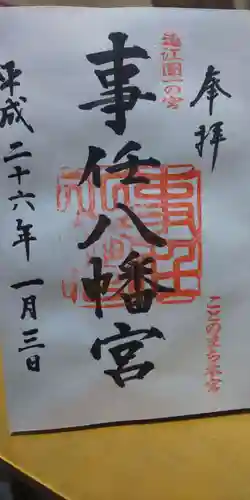 奉拝
遠江國一の宮
ことのまち本宮
事任八幡宮
平成二十六年一月三日